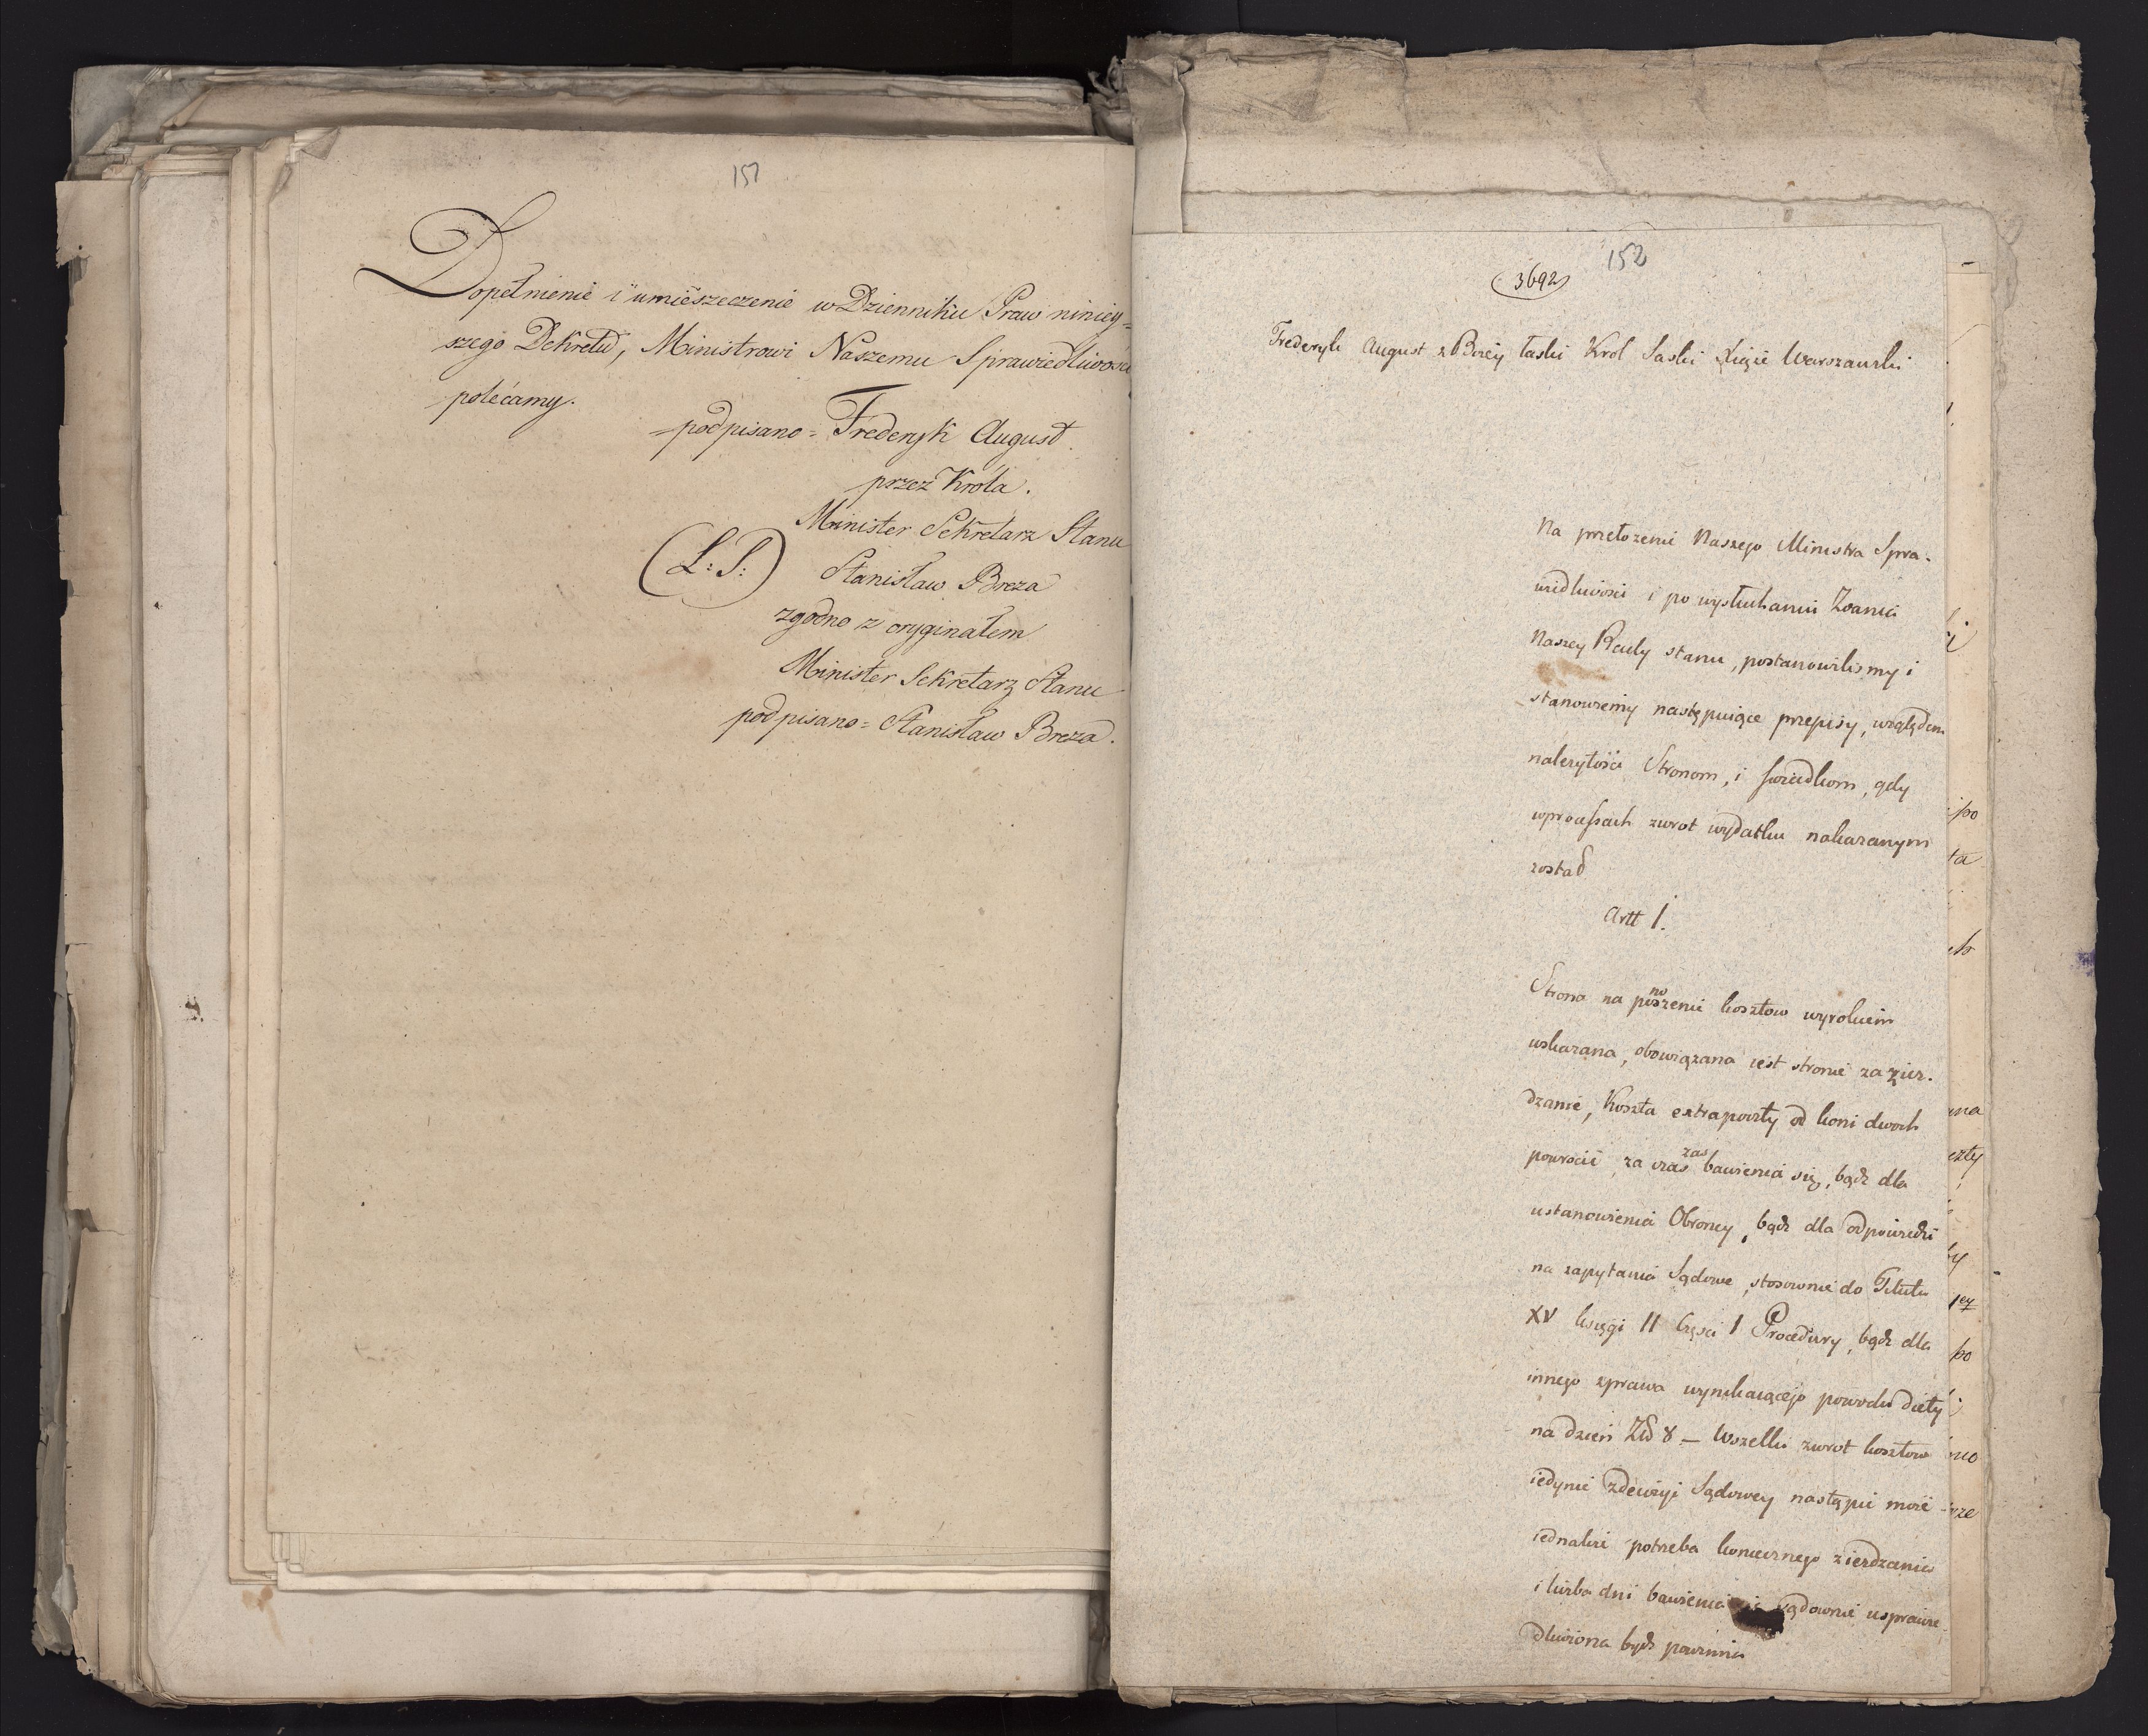 151
Dopełnienie i umieszczenie w Dzienniku Praw niniey=
szego Dekretu, Ministrowi Naszemu Sprawiedliwości
polécamy.
podpisano = Frederyk August.
przez Króla.
Minister Sekretarz Stanu
(L: S:) Stanisław Breza
zgodno z oryginałem
Minister Sekretarz Stanu
podpisano = Stanisław Breza.
152
3692
Frederyk August z Bożey łaski Krol Saski Xiąże Warszawski
Na przełozenie Naszego Ministra Spra-
wiedliwości i po wysłuchaniu Zdania
Naszey Rady stanu, postanowilismy i
stanowiemy następuiące przepisy, względem
nalezytości Stronom, i swiadkom, gdy
wprocessach zwrot wydatku nakazanym
został
Artt I.
Strona na ponoszenie kosztow wyrokiem
wskazana, obowiązana iest stronie za ziez-
dzanie, koszta extrapoczty od koni dwoch
powrocić, za czas zas bawienia się, bądz dla
ustanowienia Obrońcy, bądz dla odpowiedzi
na zapytania Sądowe, stosownie do Titułu
XV księgi II Części I Procedury, bądz dla
innego zprawa wynikaiącego powodu diety
na dzień Złł 8 — Wszelki zwrot kosztow
iedynie zdecizyi Sądowey nastąpić może
iednakże potrzeba koniecznego ziezdzania
i liczba dni bawienia się sądownie usprawie-
dliwiona bydz powinna